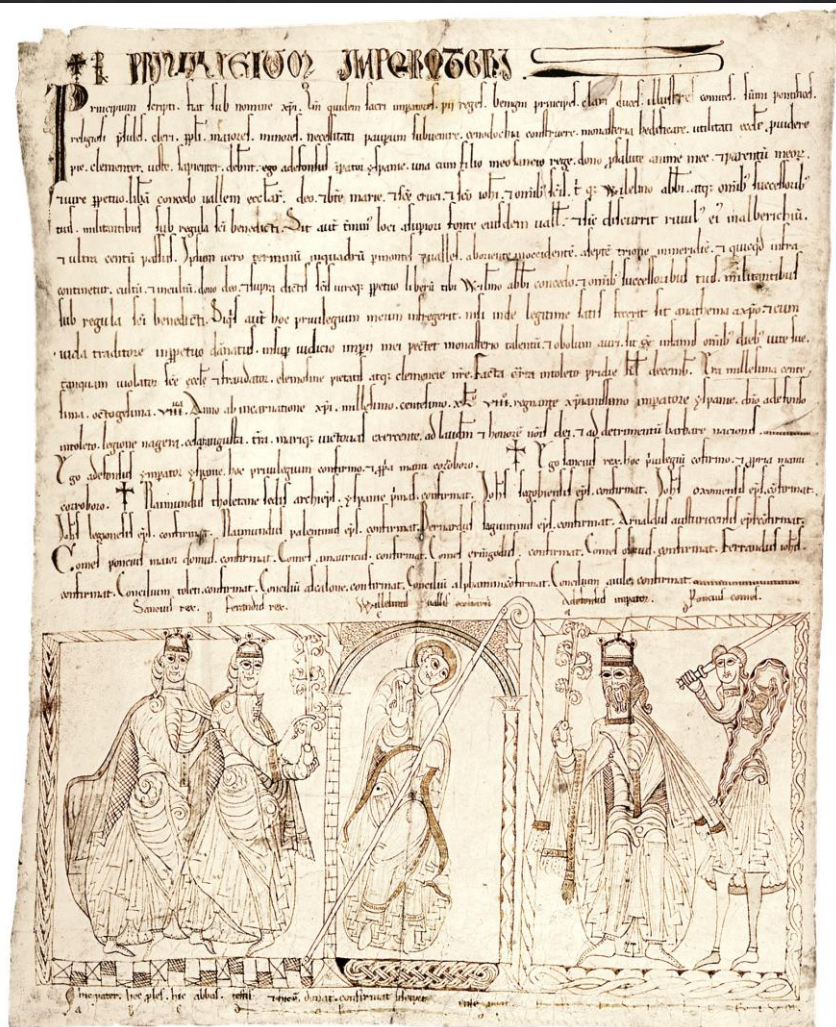 PRIVILEGIUM IMPERATORIS
Principium scripti. fiat sub nomine xpi. sacri imperatores. pii reges. benigni principes. clari duces. illustres comites. sumi pontifices.
religiosi psules. cleri. ppli. maiores. minores. necessitati paupum subvenire. cenodochia construere. monasteria hedificare. utilitati eccle. puidere
pie. clementer. iuste. sapienter. debent. ego adefonsus ipator yspanie. una cum filio meo sancio rege. dono p salute anime mee. 7 parentu meor.
7 iure ppetuo. concedo vallem ecclar. deo. 7 bte marie. 7 sce cruci. 7 sco iohi. 7 omib scis. Willelmo abbi. atq omib successorib
tuis. militantibus sub regula sci benedicti. Sit aut loci a supiori fonte eiusdem vall. discurrit rivul ei in alberichiu.
7 ultra centu passus. termini pmontes 7 valles. ab oriente in occidente. in meridie. 7 quicqd infra
continetur. cultu. 7 incultu. dono deo. 7 supra dictis scis iureq ppetuo liberu tibi Willmo abbi concedo. 7 omib successoribus tuis. militantibus
sub regula sci benedicti. Siqs aut hoc privilegium meum infregerit. nisi inde legitime satis fecerit sit anathema a xpo. 7 cum
iuda traditore inppetuo dapnatus. insup iudicio impii mei pectet monasterio talentu. 7 obolum auri. sit infamis omib dieb vite sue.
tanquam violator sce eccle 7 fraudator. elemosine pietatis atq clemencie nre. Facta carta in toleto pridie decemb. Era millesima cente
sima. octogesima. viiii. Anno ab incarnatione xpi. millesimo. centesimo. regnante xpianissimo impatore yspanie. adefonso
in toleto. legione nagera. cesaraugusta. tra. mariq. victorias exercente. ad laudem 7 honore nois dei. 7 ad detrimentu barbare nacionis.
Ego adefonsus ympator yspanie. hoc privilegium confirmo. 7 ppa manu coroboro. Ego sancius rex. hoc privilegiu cofirmo. 7 ppria manu
corroboro. Raimundus tholetane sedis archieps. yspanie pmas. confirmat. Johs segobiensis eps. confirmat. Johs oxomensis eps. cofirmat.
Johs legionensis eps. confirmat. Raimundus palentinus eps. confirmat. Bernardus saguntinus eps. confirmat. Arnaldus austuricensis eps cofirmat.
Comes poncius maior domus. confirmat. Comes amauricus. confirmat. Comes ermigodus. confirmat. Comes confirmat. Ferrandus iohis
confirmat. Concilium toleti. confirmat. Conciliu ascalone. confirmat. Conciliu alphamin cofirmat. Concilium avile. confirmat.
Sancius rex. Ferandus rex. Willelmus vallis adefonsus impator. Poncius comes.
Hic pater. hec ples. hic abbas. testis donat. confirmat